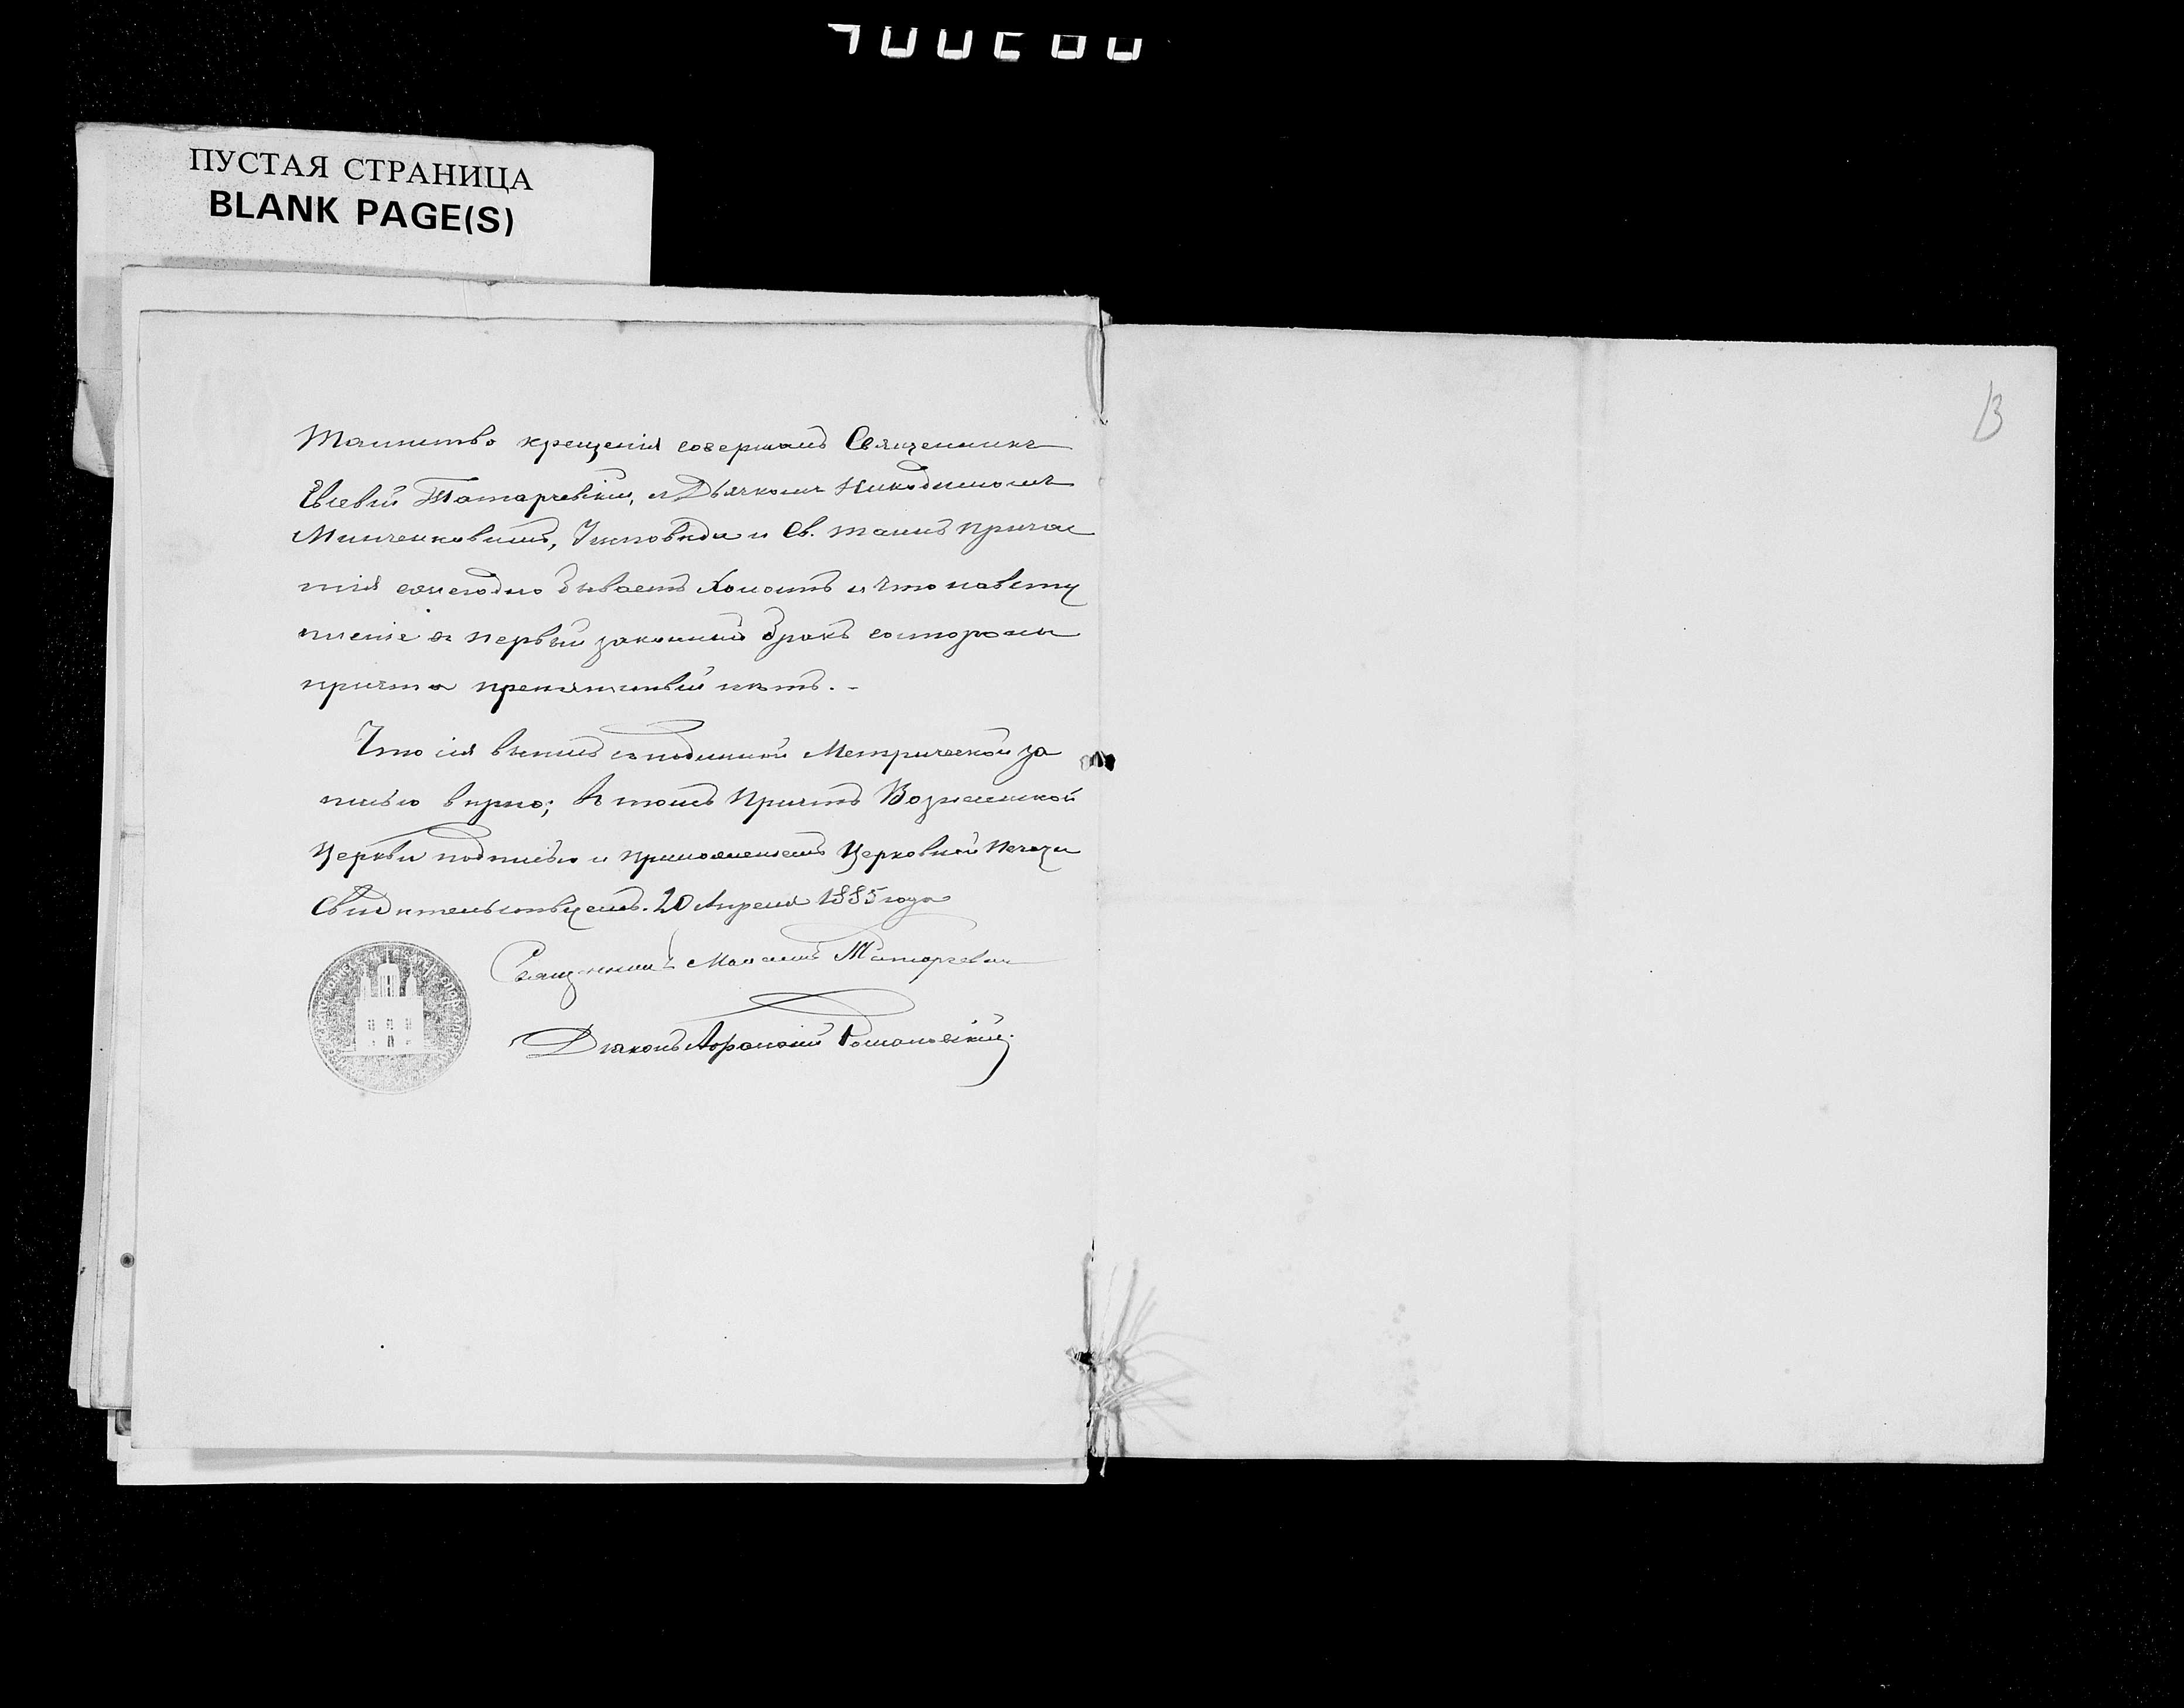 ПУСТАЯ СТРАНИЦА
BLANK PAGE(S)
13
Таинство крещенія совершалъ Священникъ
Евсевій Татаревскій, съ Дьячкомъ Никодимомъ
Минченковымъ, Исповѣди и Св. таинъ причас
тія ежегодно бываетъ холостъ и что на всту
пленіе въ первый законный бракъ со стороны
причта препятствій нѣтъ.-
Что сія выпись съ подлинной Метрической за
писью вѣрно; въ томъ Причтъ Вознесенской
Церкви подписью и приложеніемъ Церковной Печати
Свидѣтельствуемъ. 20 Апреля 1885 года
Священникъ
Діаконъ Романовскій.